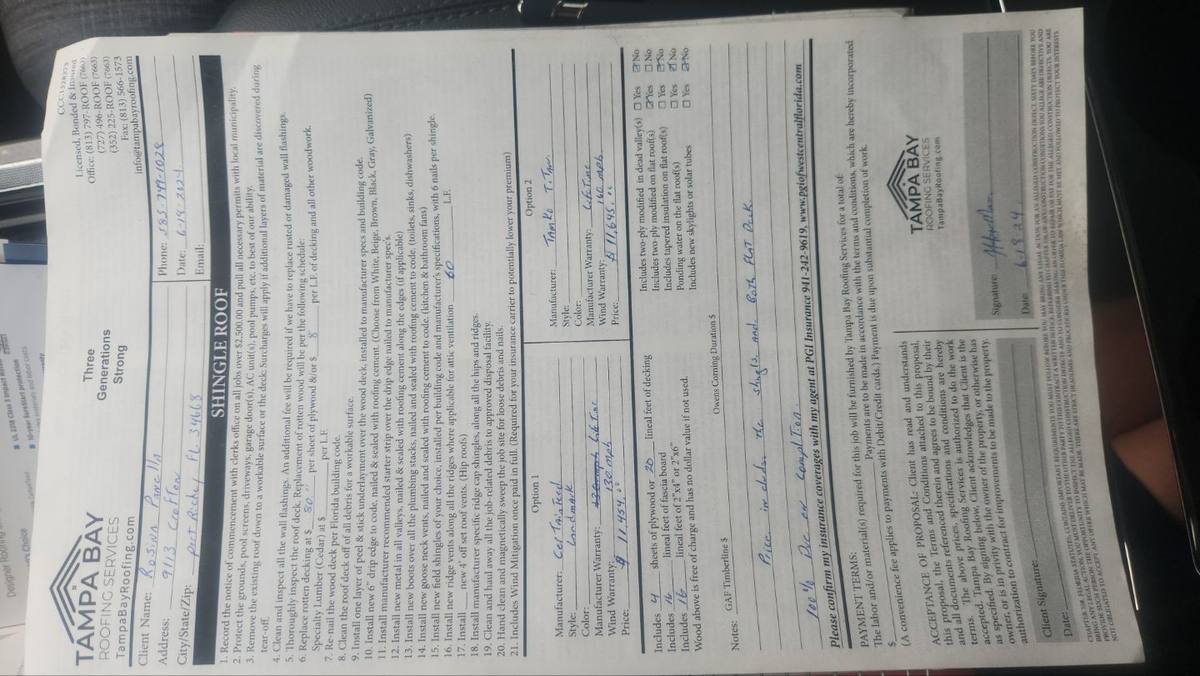 CCC1328373
TAMPA BAY
ROOFING SERVICES
TampaBayRoofing.com
Three
Generations
Strong
Licensed, Bonded & Insured
Office: (813) 797-ROOF (7663)
(727) 496-ROOF (7663)
(352) 225-ROOF (7663)
Fax: (813) 566-1573
info@tampabayroofing.com
Client Name: Rosina
Phone: 585-749-1028
Address: 9113 Crofton
Date: 6-19-2024
City/State/Zip: Port Richy FL 34668
Email:
SHINGLE ROOF
1. Record the notice of commencement with clerks office on all jobs over $2,500.00 and pull all necessary permits with local municipality.
2. Protect the grounds, pool screens, driveways, garage door(s), AC unit(s), pool pumps, etc, to best of our ability.
3. Remove the existing roof down to a workable surface or the deck. Surcharges will apply if additional layers of material are discovered during
tear-off.
4. Clean and inspect all the wall flashings. An additional fee will be required if we have to replace rusted or damaged wall flashings.
5. Thoroughly inspect the roof deck. Replacement of rotten wood will be per the following schedule:
6. Replace rotten decking at $ 80 per sheet of plywood &/or $ 8 per L.F. of decking and all other woodwork.
Specialty Lumber (Cedar) at $ per L.F.
7. Re-nail the wood deck per Florida building code.
8. Clean the roof deck off of all debris for a workable surface.
9. Install one layer of peel & stick underlayment over the wood deck, installed to manufacturer specs and building code.
10. Install new 6" drip edge to code, nailed & sealed with roofing cement. (Choose from White, Beige, Brown, Black, Gray, Galvanized)
11. Install manufacturer recommended starter strip over the drip edge nailed to manufacturer spec's.
12. Install new metal in all valleys, nailed & sealed with roofing cement along the edges (if applicable)
13. Install new boots over all the plumbing stacks, nailed and sealed with roofing cement to code (toilets, sinks, dishwashers)
14. Install new goose neck vents, nailed and sealed with roofing cement to code (kitchen & bathroom fans)
15. Install new field shingles of your choice, installed per building code and manufacturer's specifications, with 6 nails per shingle.
16. Install new ridge vents along all the ridges where applicable for attic ventilation 60 L.F.
17. Install new 4' off set roof vents. (Hip roofs)
18. Install manufacturer specific ridge cap shingles, along all the hips and ridges.
19. Clean and haul away all the job-related debris to approved disposal facility.
20. Hand clean and magnetically sweep the job site for loose debris and nails.
21. Includes Wind Mitigation once paid in full. (Required for your insurance carrier to potentially lower your premium)
Option 1
Manufacturer:
Style: Landmack
Color:
Manufacturer Warranty: LifeTime
Wind Warranty: 130 mph
Price: $ 11,454.00
Option 2
Manufacturer: Tamko Titan
Style:
Color:
Manufacturer Warranty: LifeTime
Wind Warranty: 160 mph
Price: $ 11,645.00
Includes 4 sheets of plywood or 20 lineal feet of decking
Includes 16 lineal feet of fascia board
Includes 16 lineal feet of 2"x4" or 2"x6"
Wood above is free of charge and has no dollar value if not used.
Includes two-ply modified in dead valley(s) ☐ Yes ☑ No
Includes two-ply modified on flat roof(s) ☑ Yes ☐ No
Includes tapered insulation on flat roof(s) ☐ Yes ☑ No
Ponding water on the flat roof(s) ☐ Yes ☑ No
Includes new skylights or solar tubes ☐ Yes ☑ No
Notes: GAF Timberline $
Owens Corning Duration $
Price includes the shingle and Both Flat Deck.
100% Due on Completion
Please confirm my insurance coverages with my agent at PGI Insurance 941-242-9619, www.pgiofwestcentralflorida.com
PAYMENT TERMS:
The labor and/or material(s) required for this job will be furnished by Tampa Bay Roofing Services for a total of:
$ Payments are to be made in accordance with the terms and conditions, which are hereby incorporated
(A convenience fee applies to payments with Debit/Credit cards.) Payment is due upon substantial completion of work.
ACCEPTANCE OF PROPOSAL: Client has read and understands
this proposal, the Terms and Conditions attached to this proposal,
and all documents referenced therein and agrees to be bound by their
terms. The above prices, specifications and conditions are hereby
accepted. Tampa Bay Roofing Services is authorized to do the work
as specified. By signing below, Client acknowledges that Client is the
owner, or is in privity for improvements to be made to the property.
authorization to contract for
TAMPA BAY
ROOFING SERVICES
TampaBayRoofing.com
Client Signature:
Date:
Signature:
Date 6.19.24